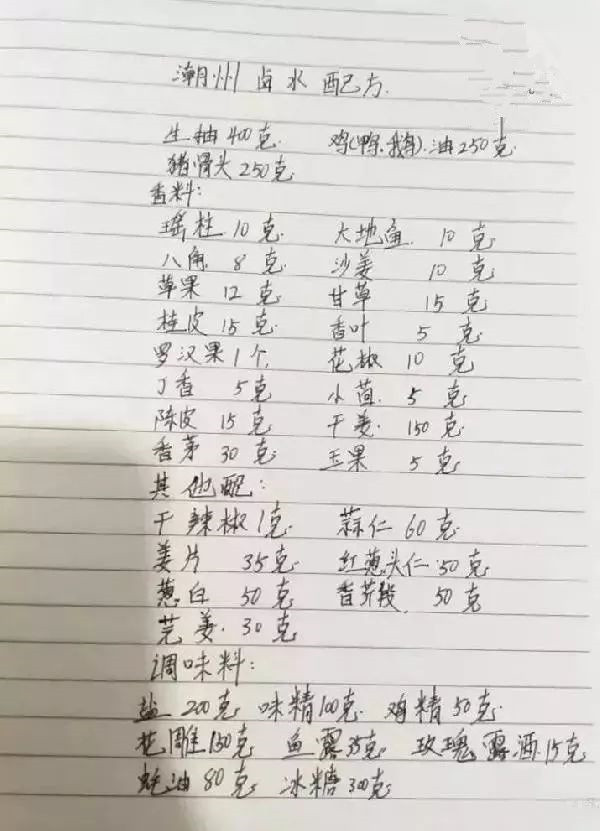 潮州卤水配方
生抽400克 鸡(鸭.鹅).油250克
猪骨头250克
香料:
瑶柱10克 大地鱼10克
八角8克 沙姜10克
草果12克 甘草15克
桂皮15克 香叶5克
罗汉果1个 花椒10克
丁香5克 小茴5克
陈皮15克 干姜150克
香茅30克 玉果5克
其他配:
干辣椒1克 蒜仁60克
姜片35克 红葱头仁50克
葱白50克 香芹段50克
芫姜.30克
调味料:
盐200克 味精100克 鸡精50克
花雕150克 鱼露35克 玫瑰露酒15克
蚝油80克 冰糖300克